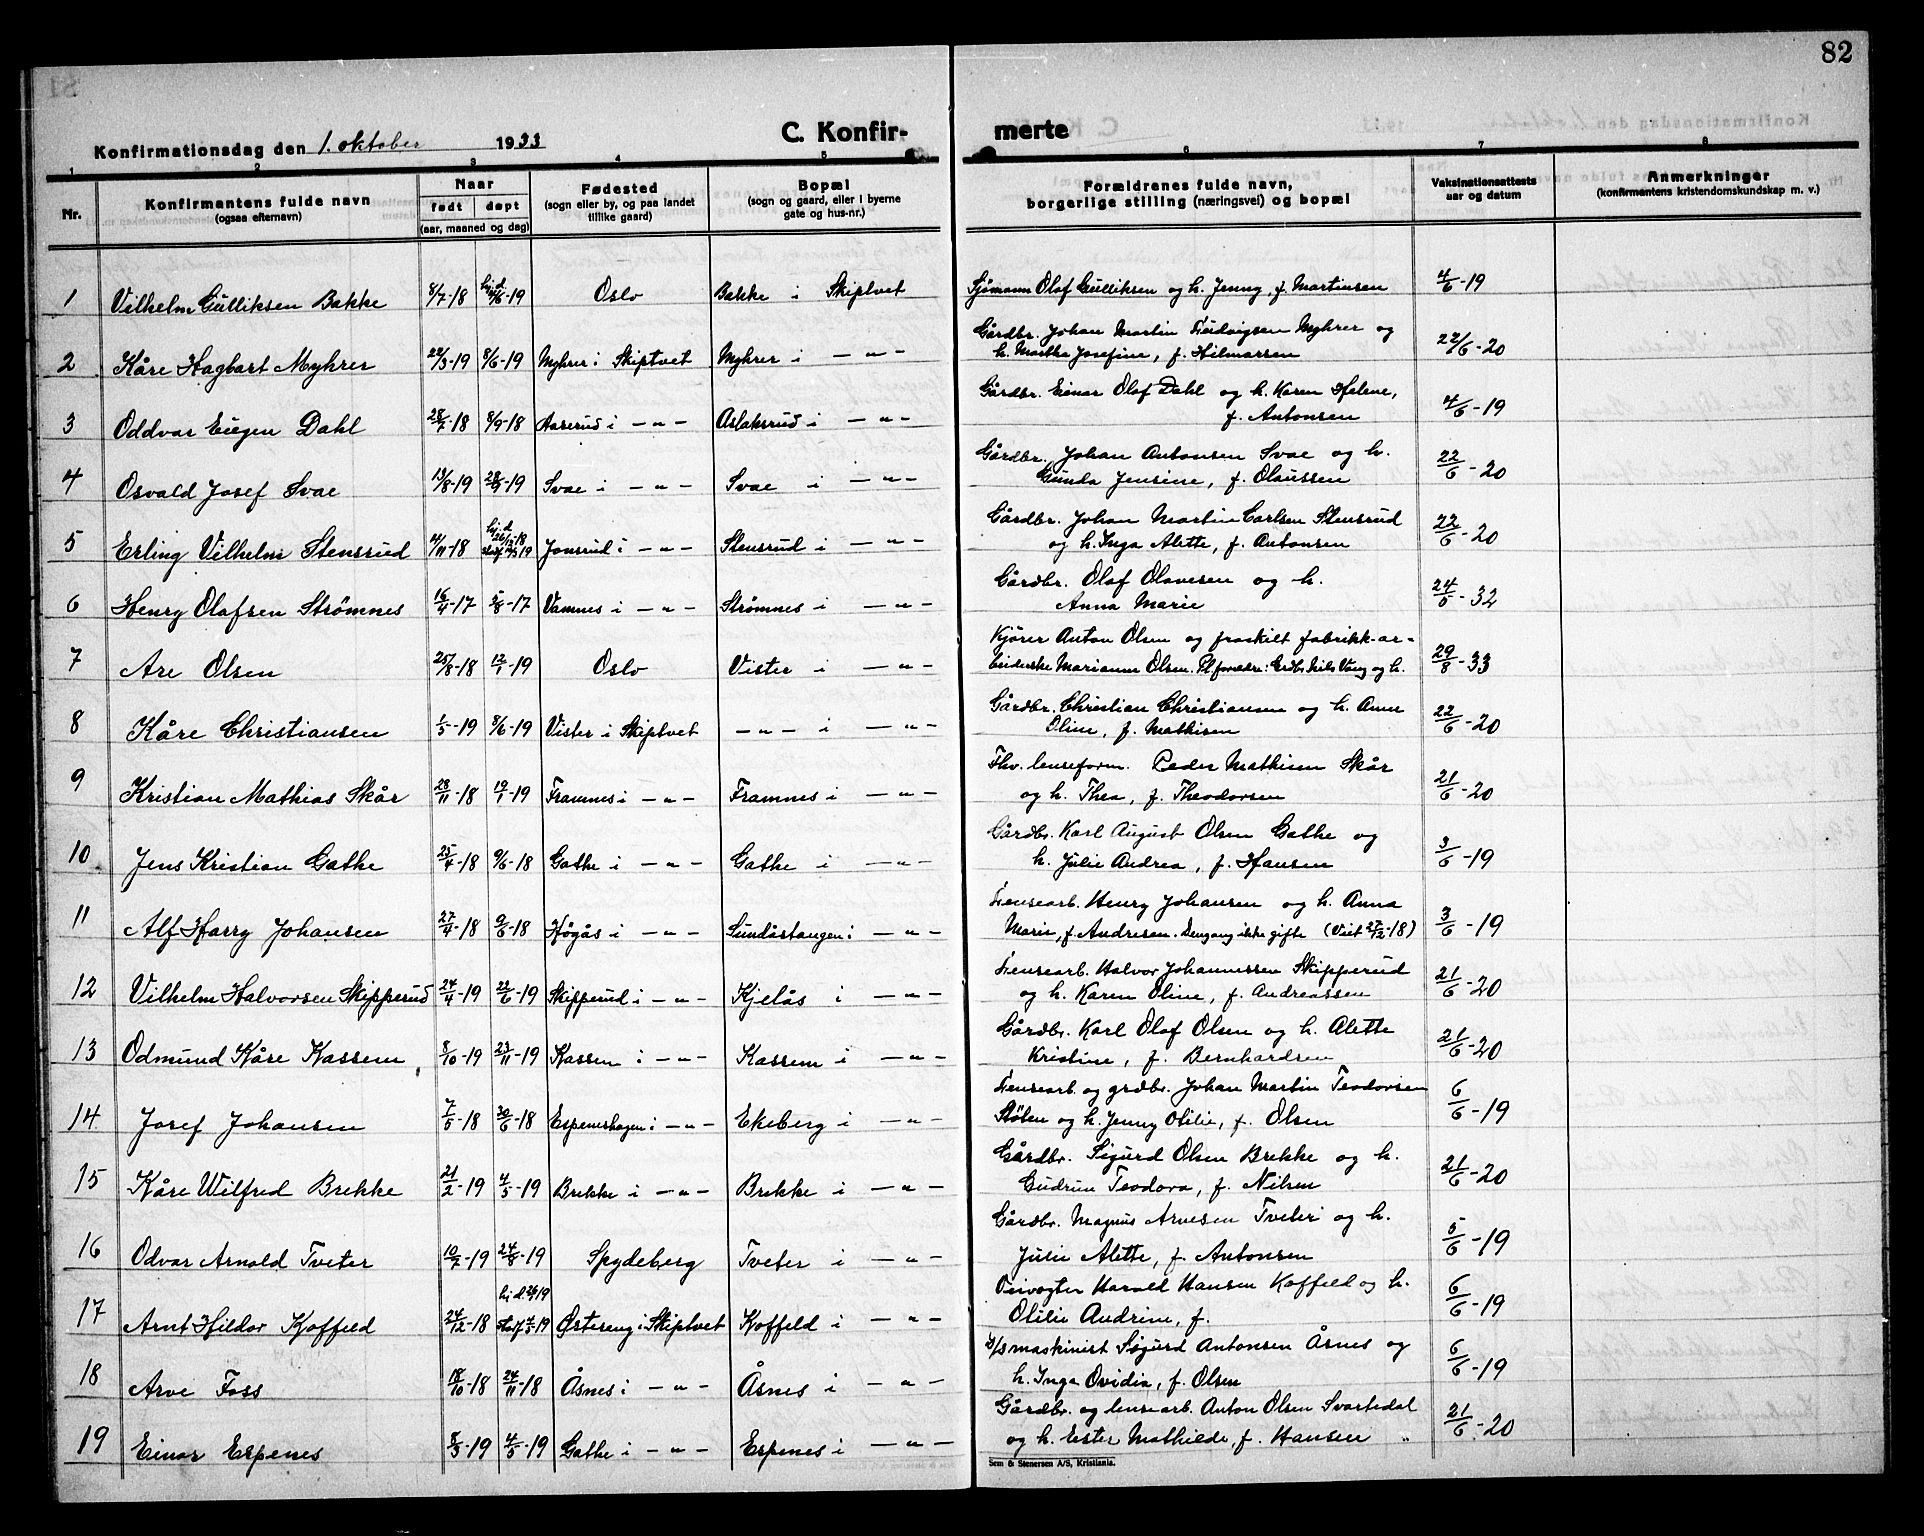 82
Konfirmationsdag den 1. oktober 1933
C. Konfir-
merte
1 2 3 4 5 6 7 8
Nr.
Konfirmantens fulde navn
(ogsaa efternavn)
Naar
født døpt
(aar, maaned og dag)
Fødested
(sogn eller by, og paa landet
tillike gaard)
Bopæl
(sogn og gaard, eller i byerne
gate og hus-nr.)
Forældrenes fulde navn,
borgerlige stilling (næringsvei) og bopæl
Vaksinationsattests
aar og datum
Anmerkninger
(konfirmantens kristendomskundskap m. v.)
1 Vilhelm Gulliksen Bakke 8/7-18 hj.d. /6-19 Oslo Bakke i Skiptvet Sjømann Olaf Gulliksen og h. Jenny, f. Martinsen 4/6-19
2 Kåre Hagbart Myhrer 22/3-19 8/6-19 Myhrer i Skiptvet Myhrer i — " — Gårdbr. Johan Martin Ludvigsen Myhrer og
h. Marthe Josefine, f. Hilmarsen 22/6-20
3 Oddvar Eugen Dahl 28/7-18 8/9-18 Aaserud i — " — Aslaksrud i — " — Gårdbr. Einar Olaf Dahl og h. Karen Helene,
f. Antonsen 4/6-19
4 Osvald Josef Svae 13/8-19 28/9-19 Svae i — " — Svae i — " — Gårdbr. Johan Antonsen Svae og h.
Gunda Jensine, f. Olaussen 22/6-20
5 Erling Vilhelm Stensrud 4/11-18 hj.d. 26/12-18 stadf. /3 19 Jonsrud i — " — Stensrud i — " — Gårdbr. Johan Martin Carlsen Stensrud
og h. Inga Alette, f. Antonsen 22/6-20
6 Henry Olafsen Strømnes 16/4-17 5/8-17 Vamnes i — " — Strømnes i — " — Gårdbr. Olaf Olavesen og h.
Anna Marie 24/5-32
7 Are Olsen 25/8-18 12/1-19 Oslo Vister i — " — Kjører Anton Olsen og fraskilt fabrikk-ar-
beiderske Marianne Olsen. Pl.forældre: Grdbr. Nils Vang og h. 29/8-33
8 Kåre Christiansen 1/5-19 8/6-19 Vister i Skiptvet — " — i — " — Gårdbr. Christian Christiansen og h. Anne
Oline, f. Mathisen 22/6-20
9 Kristian Mathias Skår 28/11-18 19/1-19 Framnes i — " — Framnes i — " — Fhv. lenseform. Peder Mathisen Skår
og h. Thea, f. Theodorsen 21/6-20
10 Jens Kristian Gathe 25/4-18 9/6-18 Gathe i — " — Gathe i — " — Gårdbr. Karl August Olsen Gathe og
h. Julie Andrea, f. Hansen 3/6-19
11 Alf Harry Johansen 27/4-18 9/6-18 Høgås i — " — Sundåstangen i — " — Lensearb. Henry Johansen og h. Anna
Marie, f. Andresen. Dengang ikke gifte (Viet 27/12-18) 3/6-19
12 Vilhelm Halvorsen Skipperud 24/4-19 22/6-19 Skipperud i — " — Kjelås i — " — Lensearb. Halvor Johannessen Skipperud
og h. Karen Oline, f. Andreassen 21/6-20
13 Odmund Kåre Kassem 8/10-19 23/11-19 Kassem i — " — Kassem i — " — Gårdbr. Karl Olaf Olsen og h. Alette
Kristine, f. Bernhardsen 21/6-20
14 Josef Johansen 7/5-18 30/6-18 Espenshagen i — " — Ekeberg i — " — Lensearb. og grdbr. Johan Martin Teodorsen
Stølen og h. Jenny Otilie, f. Olsen 6/6-19
15 Kåre Wilfred Brekke 21/2-19 4/5-19 Brekke i — " — Brekke i — " — Gårdbr. Sigurd Olsen Brekke og h.
Gudrun Teodora, f. Nilsen 21/6-20
16 Odvar Arnold Tveter 10/7-19 24/8-19 Spydeberg Tveter i — " — Gårdbr. Magnus Arvesen Tveter og h.
Julie Alette, f. Antonsen 5/6-19
17 Arnt Hildor Koffeld 24/12-18 hj.d. 19 stadf. /5-19 Østereng i Skiptvet Koffeld i — " — Harald Hansen Koffeld og h.
Otilie Andrine, f. 6/6-19
18 Arve Foss 18/10-18 24/11-18 Åsnes i — " — Åsnes i — " — D/S maskinist Sigurd Antonsen Åsnes og
h. Inga Ovidia, f. Olsen 6/6-19
19 Einar Espenes 8/3-19 4/5-19 Gathe i — " — Espenes i — " — Gårdbr. og lensearb. Anton Olsen Svartedal
og h. Ester Mathilde, f. Hansen 21/6-20
Sem & Stenersen A/S, Kristiania.